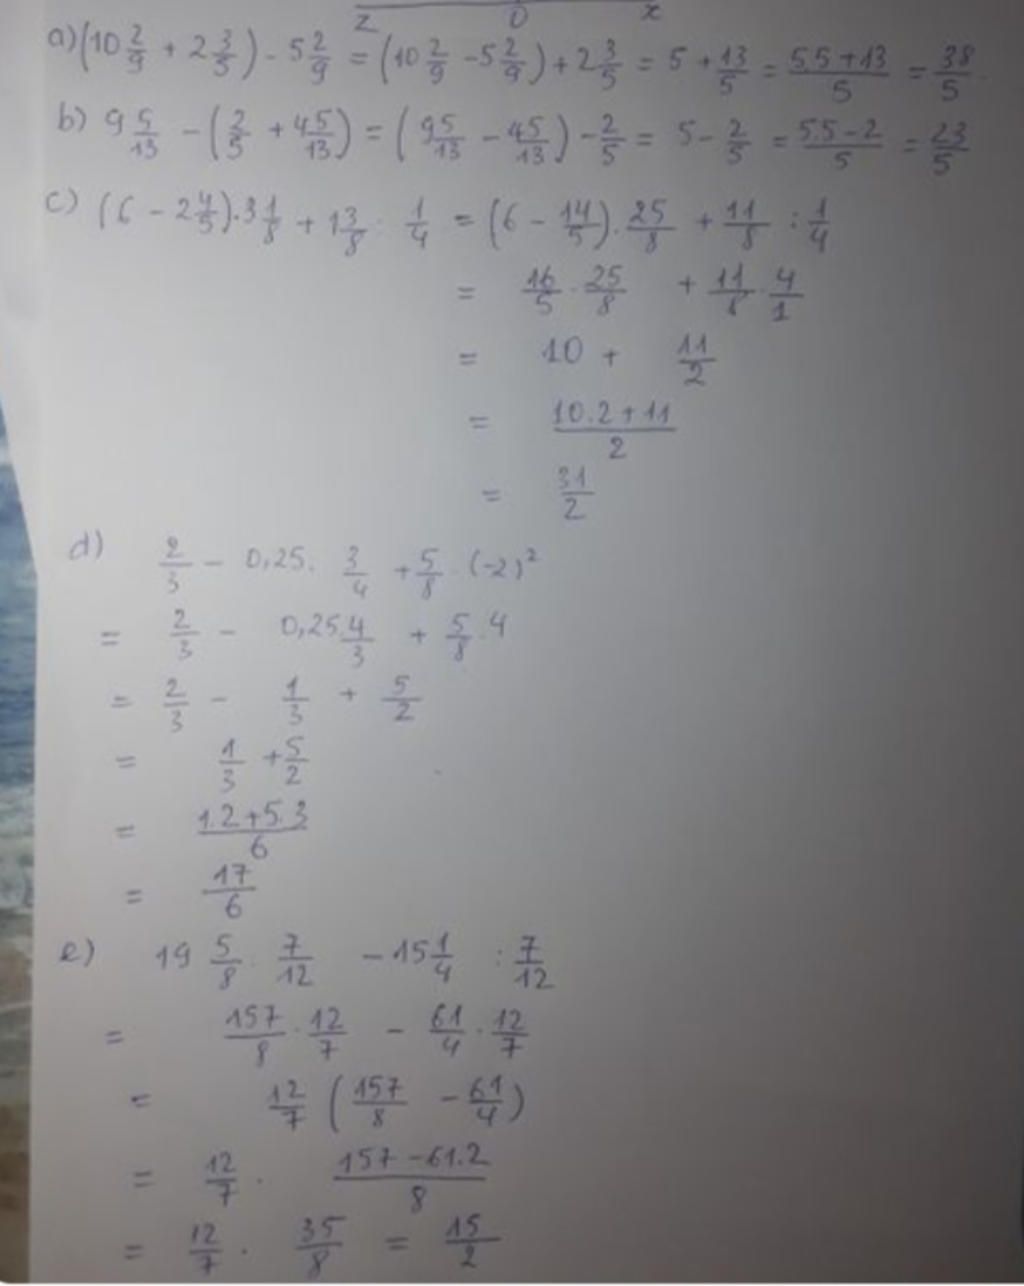 z 0 x
a) (10 2/9 + 2 3/5) - 5 2/9 = (10 2/9 - 5 2/9) + 2 3/5 = 5 + 13/5 = (5.5+13)/5 = 38/5
b) 9 5/13 - (2/5 + 4 5/13) = (9 5/13 - 4 5/13) - 2/5 = 5 - 2/5 = (5.5-2)/5 = 23/5
c) (6 - 2 4/5) . 3 1/8 + 1 3/8 : 1/4 = (6 - 14/5) . 25/8 + 11/8 : 1/4
= 16/5 . 25/8 + 11/8 . 4/1
= 10 + 11/2
= (10.2+11)/2
= 31/2
d) 2/3 - 0,25 . 3/4 + 5/8 . (-2)²
= 2/3 - 0,25 . 4/3 + 5/8 . 4
= 2/3 - 1/3 + 5/2
= 1/3 + 5/2
= (1.2+5.3)/6
= 17/6
e) 19 5/8 . 7/12 - 15 1/4 : 7/12
= 157/8 . 12/7 - 61/4 . 12/7
= 12/7 (157/8 - 61/4)
= 12/7 . (157-61.2)/8
= 12/7 . 35/8 = 15/2